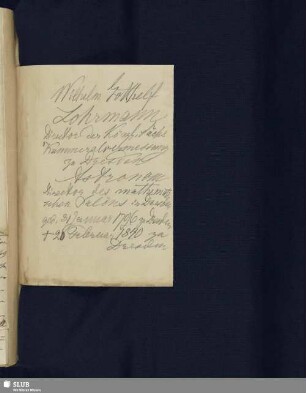 Wilhelm Gotthelf
Lohrmann
Direktor der Königl. Sächs.
Kammeralvermessung
zu Dresden
Astronom
Direktor des mathem.
Salons in Dresden
geb. 31 Januar 1796 zu Dresden
+ 20 Februar 1840 zu
Dresden
SLUB